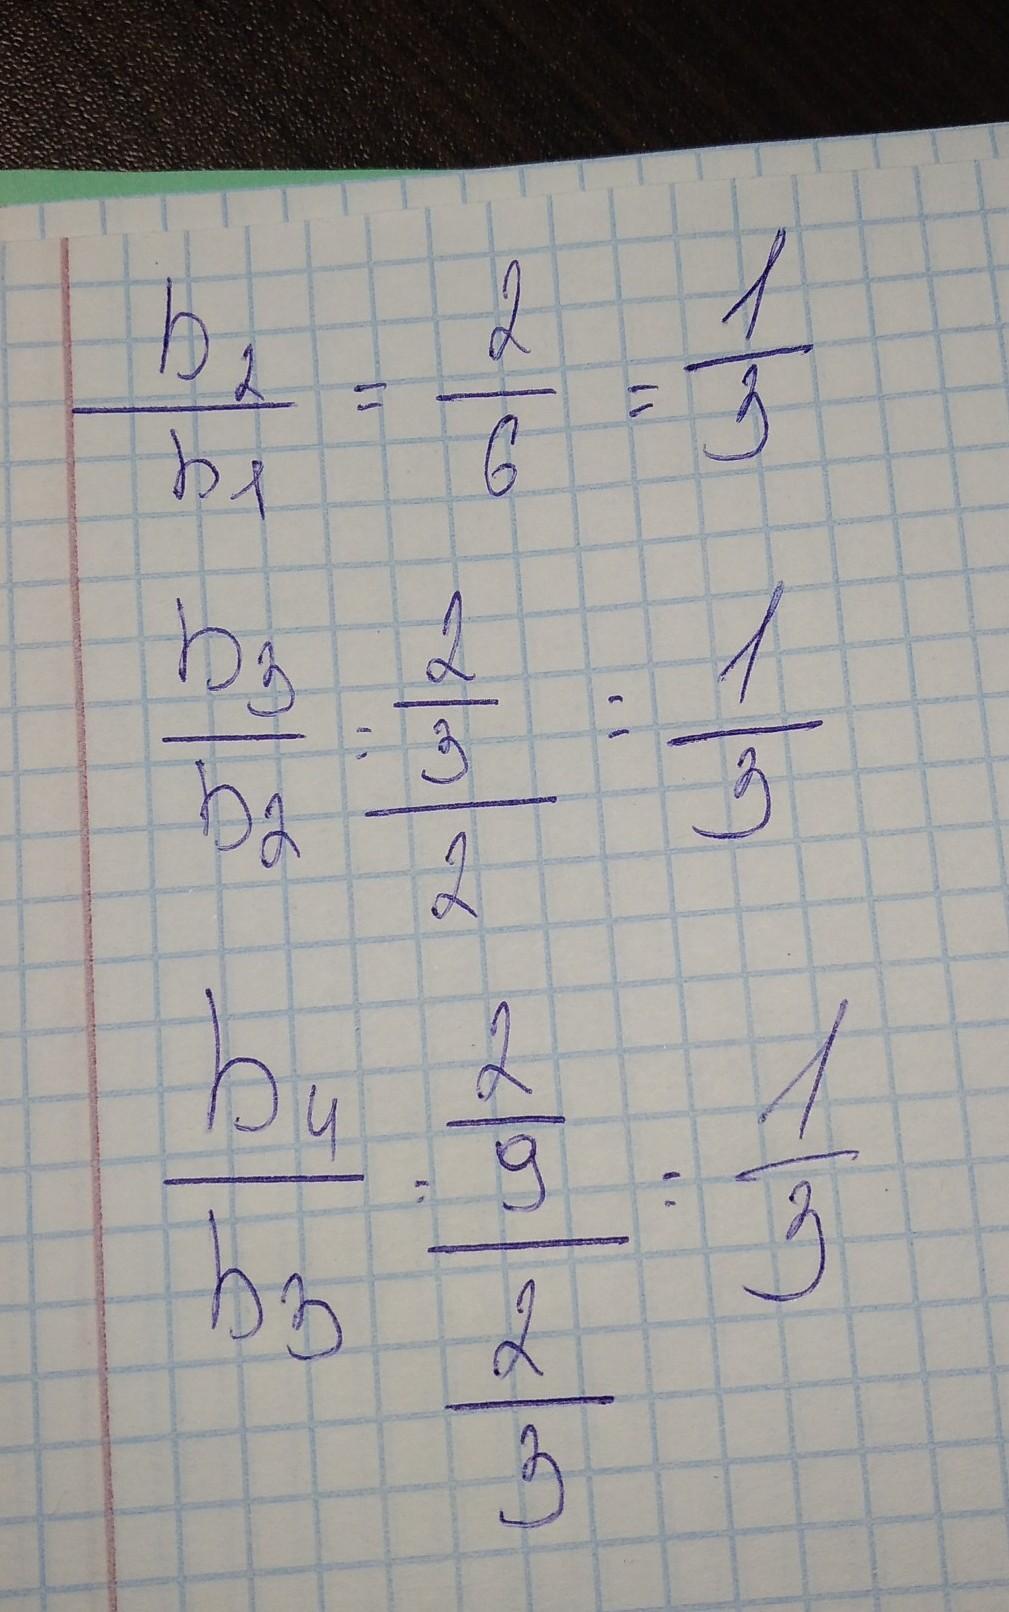 b₂/b₁ = 2/6 = 1/3
b₃/b₂ = (2/3)/2 = 1/3
b₄/b₃ = (2/9)/(2/3) = 1/3